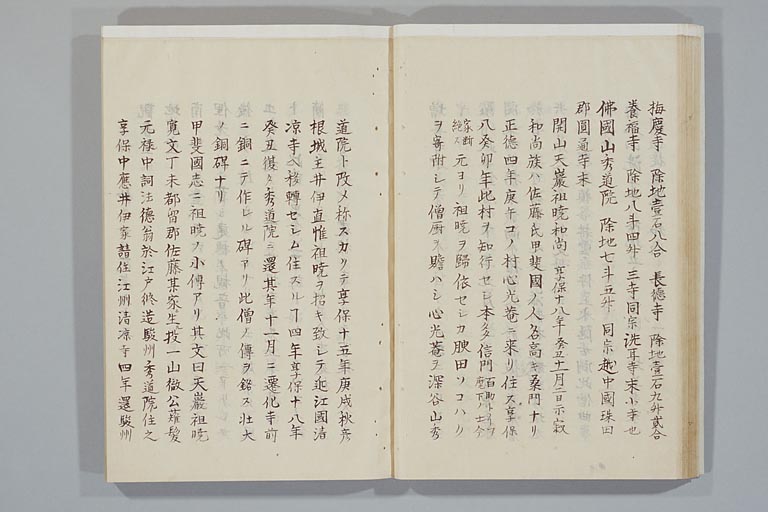 梅慶寺 除地壹石八合 長徳寺 除地壹石九升貳合
養福寺 除地八斗四升 三寺同宗洗耳寺末小寺也
佛國山秀道院 除地七斗五升 同宗越中國珠曰
郡圓通寺末
開山天巖祖曉和尚 享保十八年癸丑十一月二日示寂
和尚族ハ佐藤氏甲斐國ノ人名高キ桑門ナリ
正德四年庚午コノ村心光菴ニ来リ住ス享保
八癸卯年此村ヲ知行セシ本多信門
家断絶ス 元ヨリ祖曉ヲ歸依セシカ腴田ソコハク
ヲ寄附シテ僧厨ヲ贍ハシ心光菴ヲ深谷山秀
道院ト改メ称スカクテ享保十五年庚戌秋彦
根城主井伊直惟祖曉ヲ招キ致シテ近江國清
凉寺ヘ移轉セシム住スルヿ四年享保十八年
癸丑復タ秀道院ニ還其年十一月ニ遷化寺前
ニ銅ニテ作レル碑アリ此僧ノ傳ヲ鐫ス壮大
ノ銅碑ナリ
甲斐國志ニ祖曉カ小傳アリ其文曰天巖祖曉
寛文丁未都留郡佐藤某家生投一山徹公薙髪
元禄中詞法德翁於江戸後造駿州秀道院住之
享保中應井伊家請住江州清凉寺四年還駿州